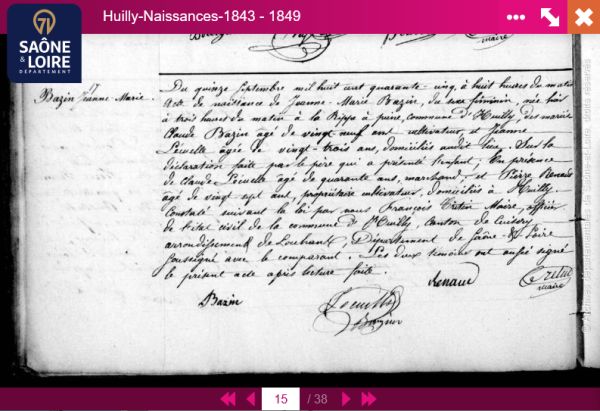 Huilly-Naissances-1843 - 1849
71
SAÔNE
& LOIRE
DÉPARTEMENT
Bazin Jeanne-Marie
Du quinze Septembre mil huit cent quarante-cinq, à huit heures du matin
Acte de naissance de Jeanne-Marie Bazin, du sexe féminin, née hier
à trois heures du matin à la commune d'Huilly, des mariés
Claude Bazin agé de vingt neuf ans cultivateur, et Jeanne
agée de vingt trois ans, domiciliés audit lieu. Sur la
déclaration faite par le père qui a présenté l'enfant; En présence
de Claude agé de quarante ans, marchand; et Pierre Renaud
agé de vingt sept ans, propriétaire cultivateur, domiciliés à Huilly.
Constaté suivant la loi par nous François Maire, officier
de l'état civil de la commune d'Huilly, canton de Cuisery
arrondissement de Louhans, Département de Saône & Loire
soussigné avec le comparant. Les deux témoins ont aussi signé
le présent acte après lecture faite.
Bazin
Renaud
maire
15 / 38